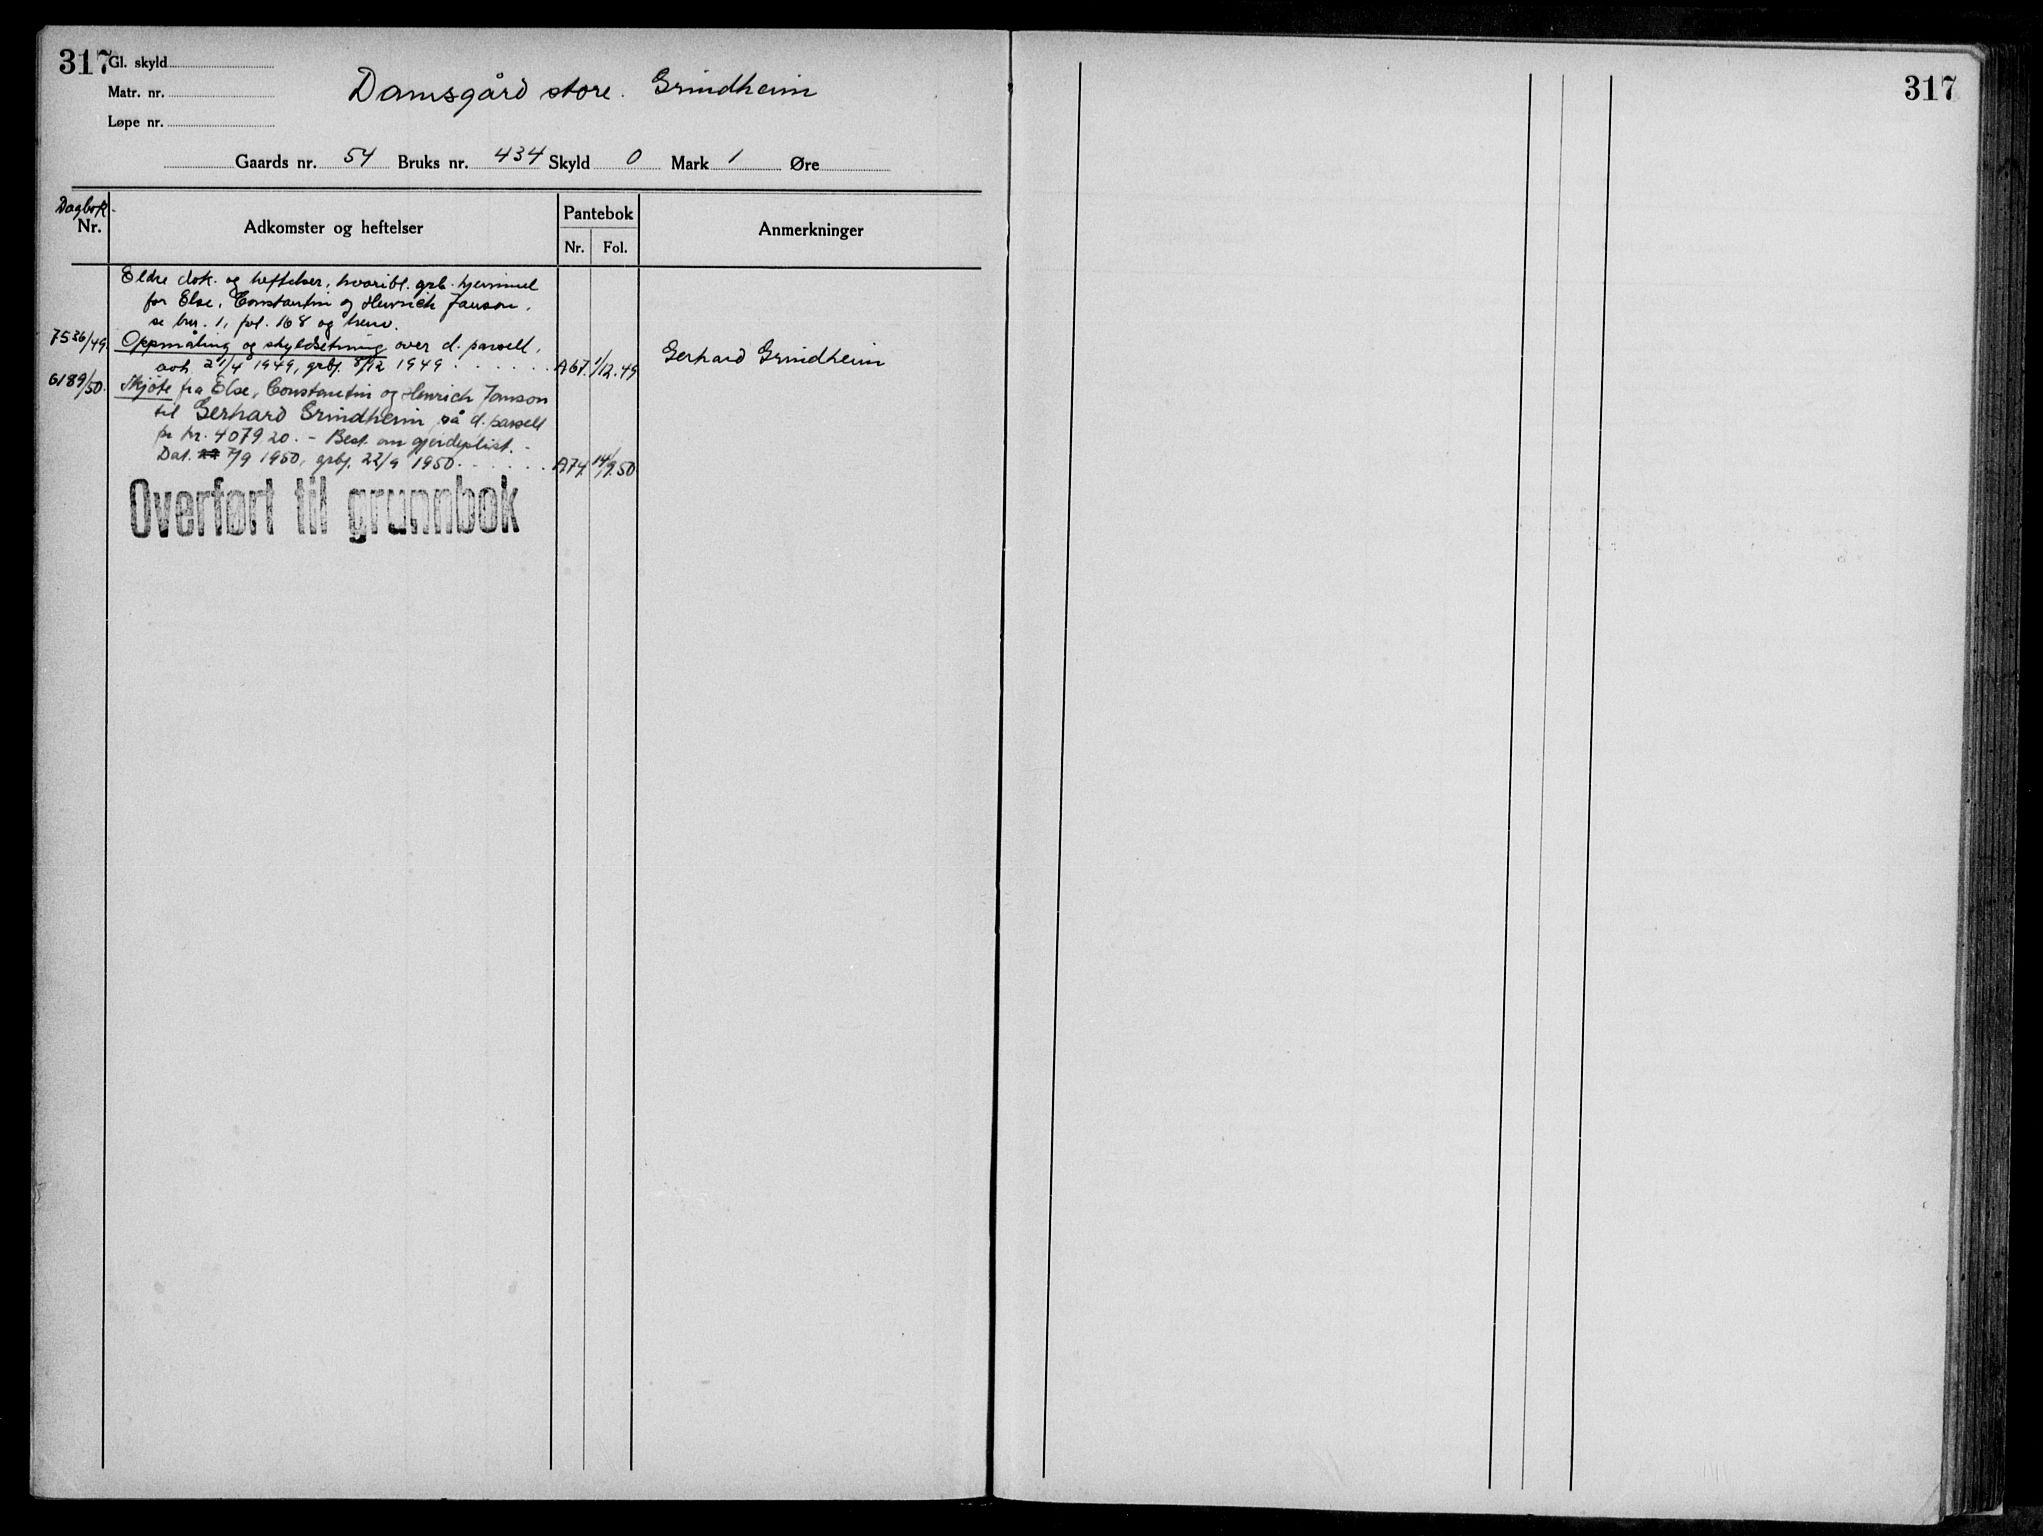 317
Gl. skyld
Matr. nr.
Løpe nr.
Damsgård store. Grindheim
Gaards nr. 54 Bruks nr. 434 Skyld 0 Mark 1 Øre
Dagbok-
Nr.
Adkomster og heftelser
Pantebok
Nr. Fol.
Anmerkninger
Eldre dok. og heftelser, hvoribl. grb. hjemmel
for Else, Constantin og Henrich Janson,
se bnr. 1, fol. 168 og henv.
7536/49. Oppmåling og skyldsetning over d. parsell,
avh. 21/4 1949, grbf. 8/12 1949 . . . . . . A67. 1/12.49
Gerhard Grindheim
6189/50. Skjøte fra Else, Constantin og Henrich Janson
til Gerhard Grindheim på d. parsell
for kr. 4079 20. - Best. om gjerdeplikt. -
Dat. 7/9 1950, grbf. 22/9 1950. . . . . . A74. 14/9.50
Overført til grunnbok
317